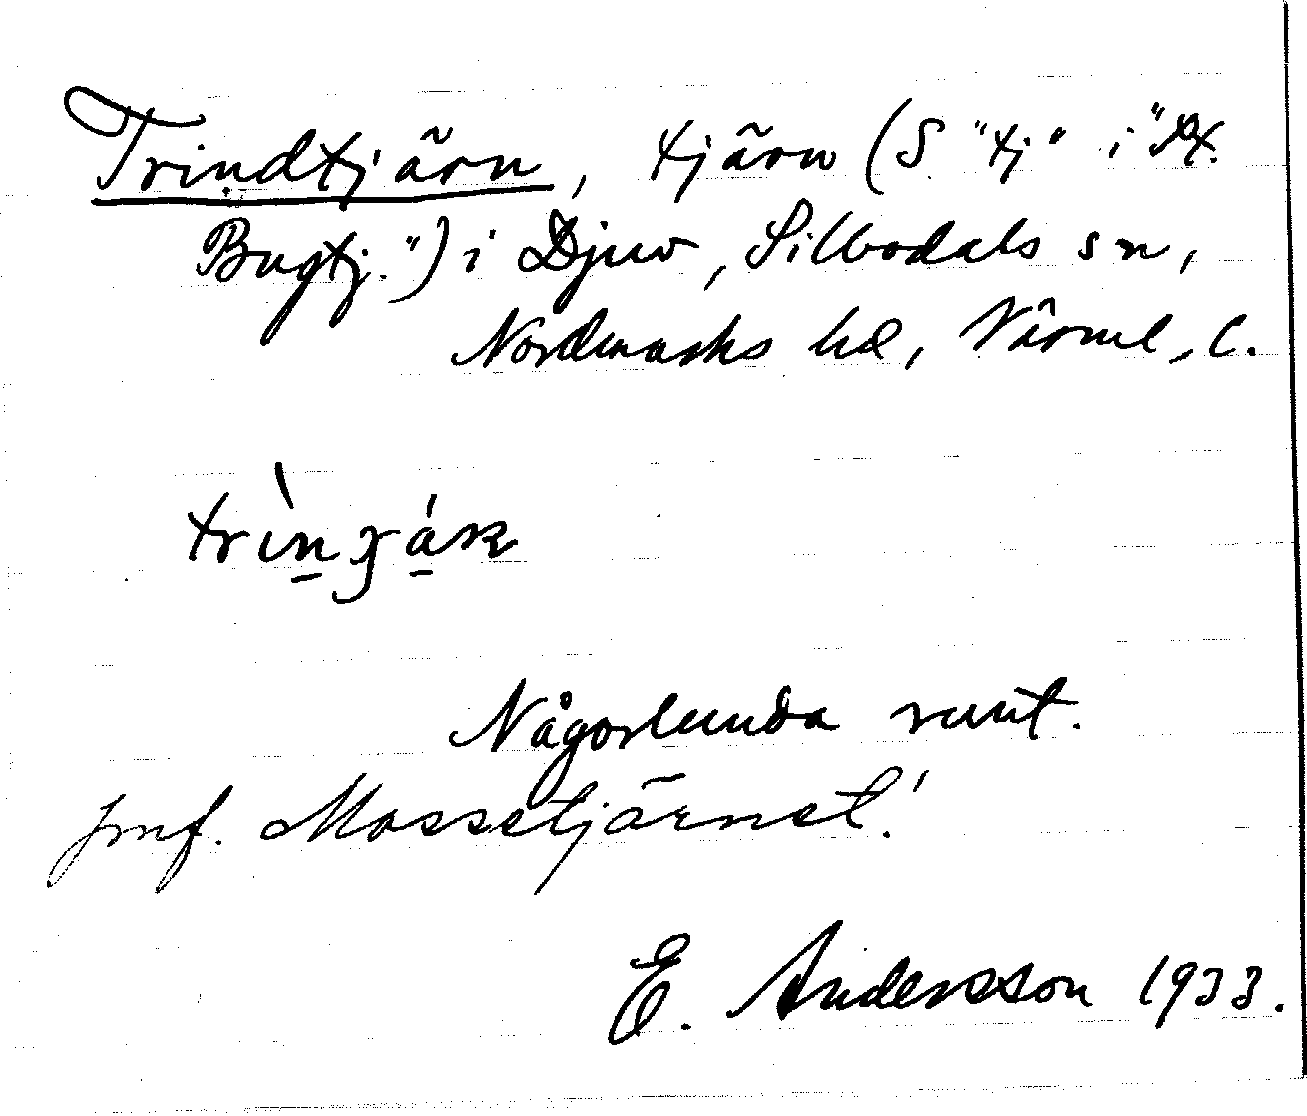 Trindtjärn, tjärn (S "tj" i "St.
Bugtj.") i Djuv, Silbodals sn,
Nordmarks hd, Värml, l.
Någorlunda runt.
jmf. Mossetjärnet!
E. Andersson 1933.